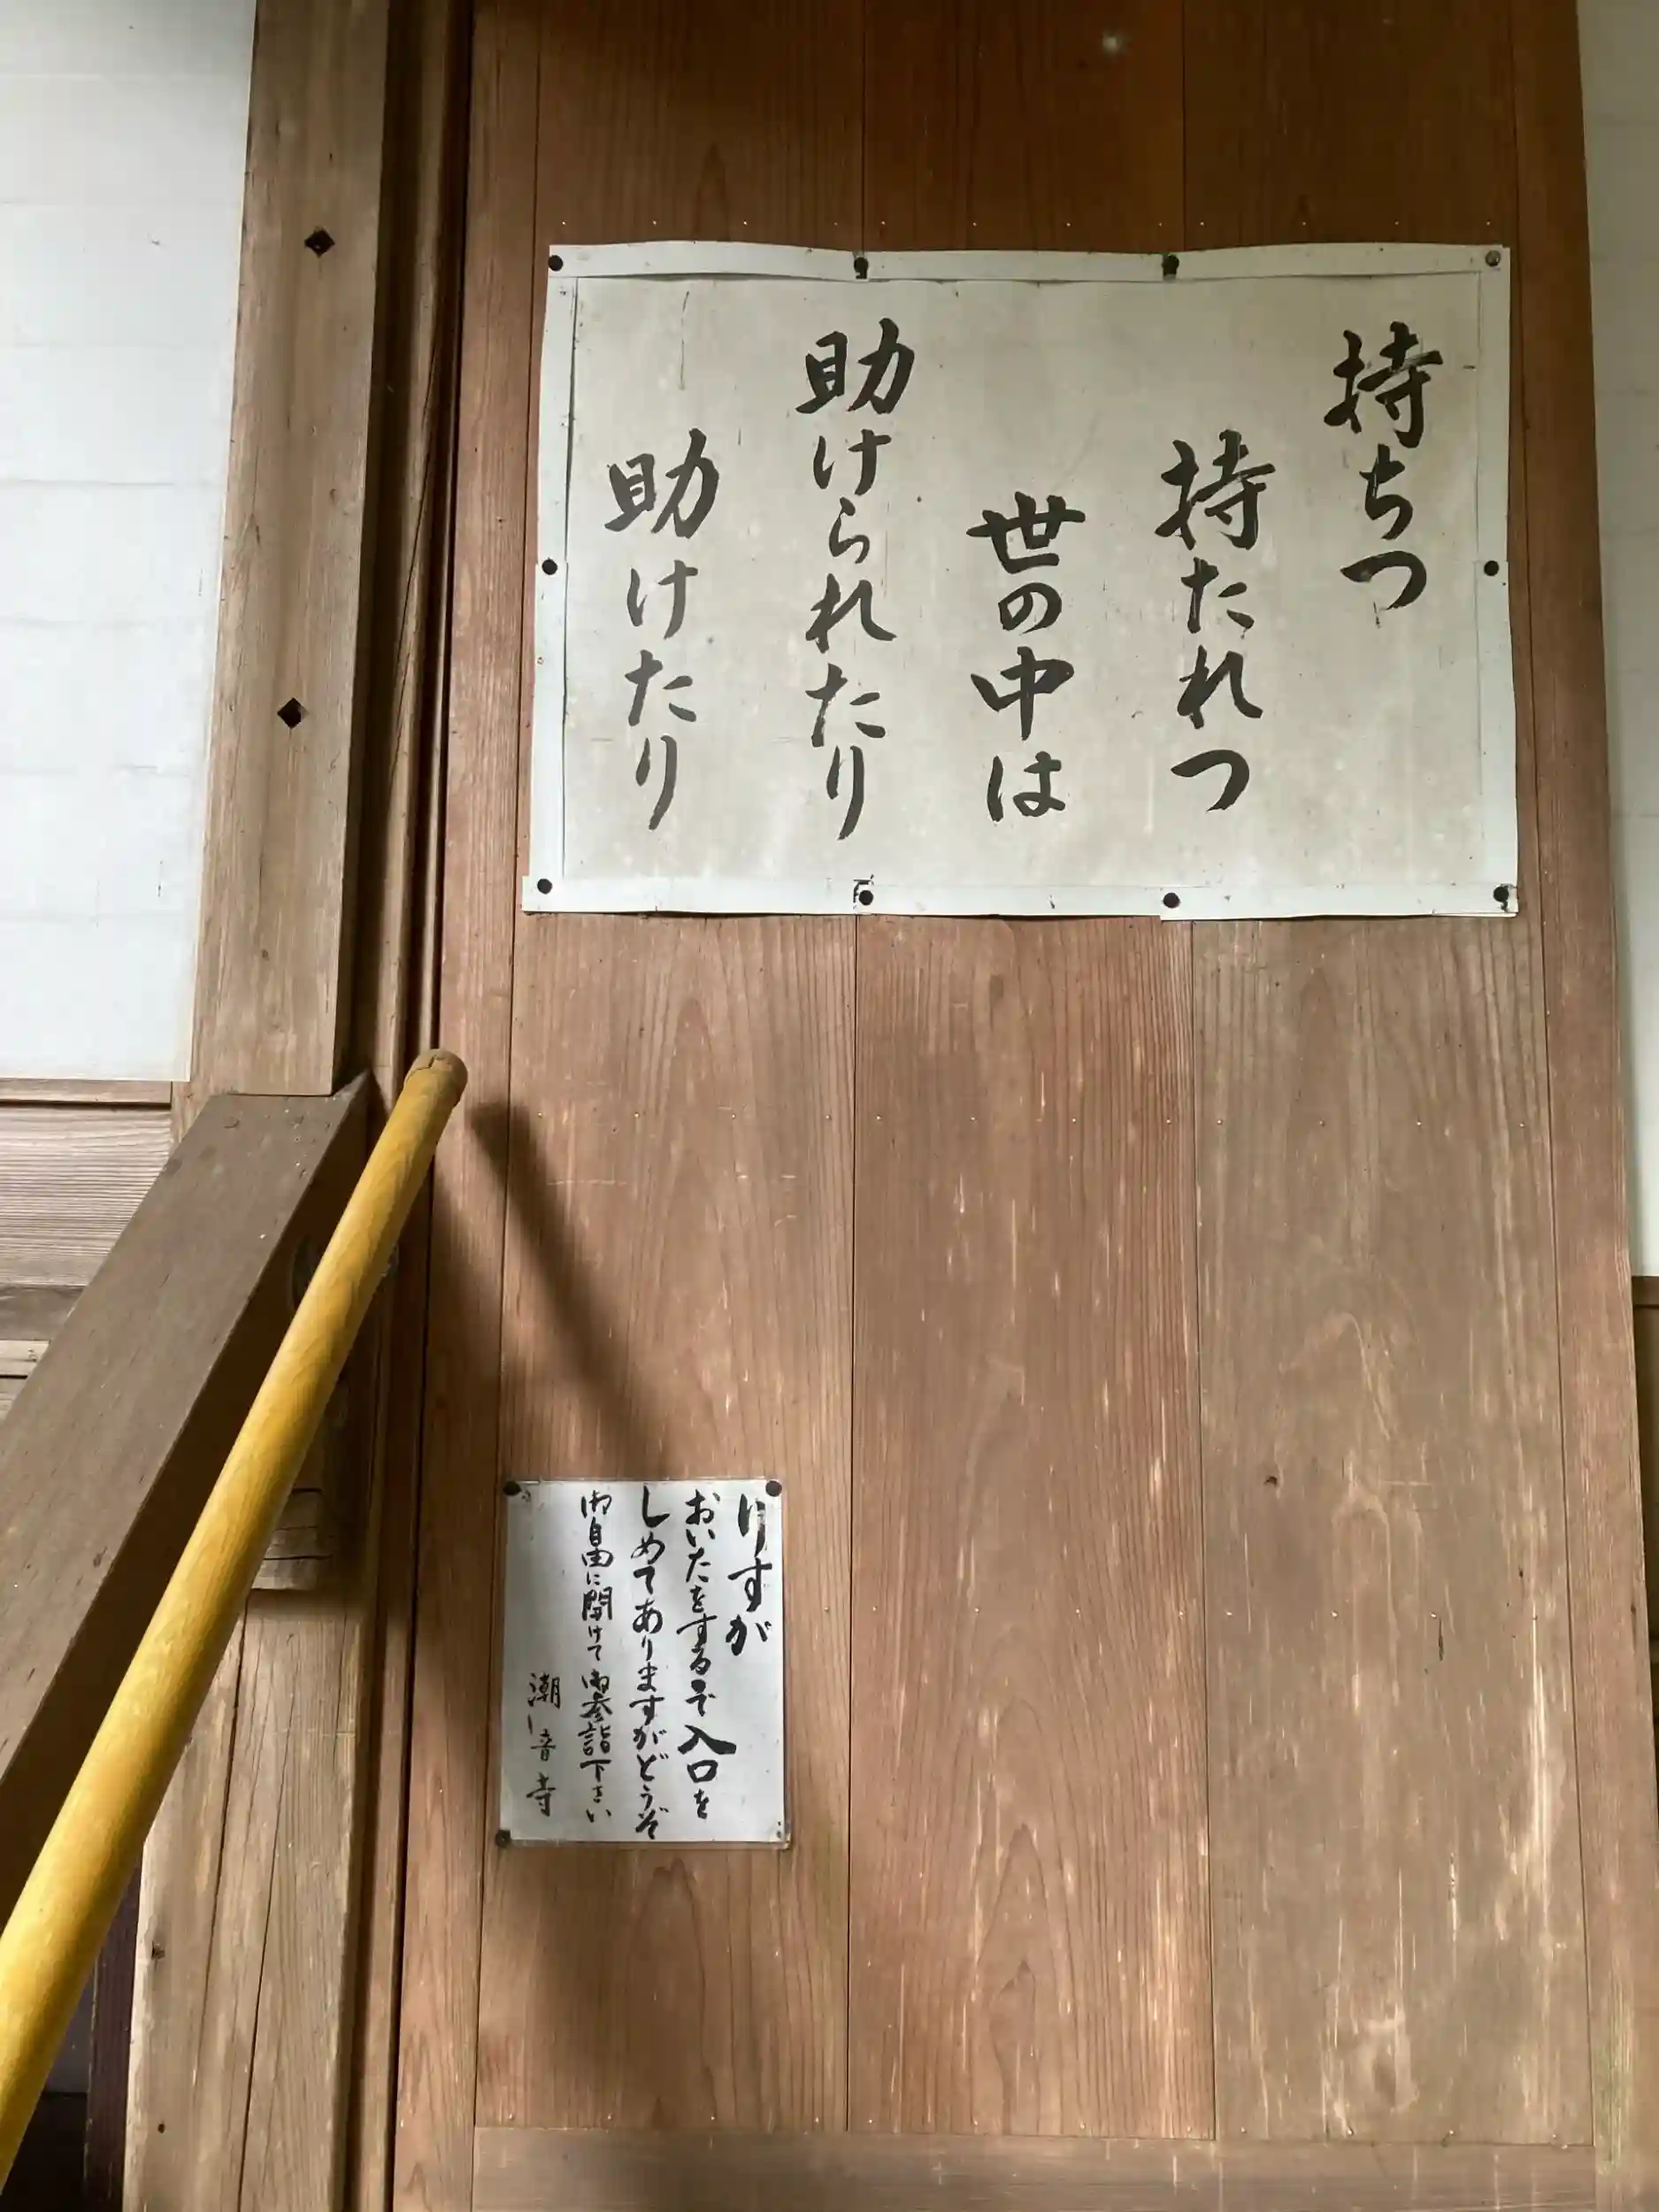 持ちつ
持たれつ
世の中は
助けられたり
助けたり
りすが
おいたをするので入口を
しめてありますがどうぞ
御自由に開けて御参詣下さい
潮音寺